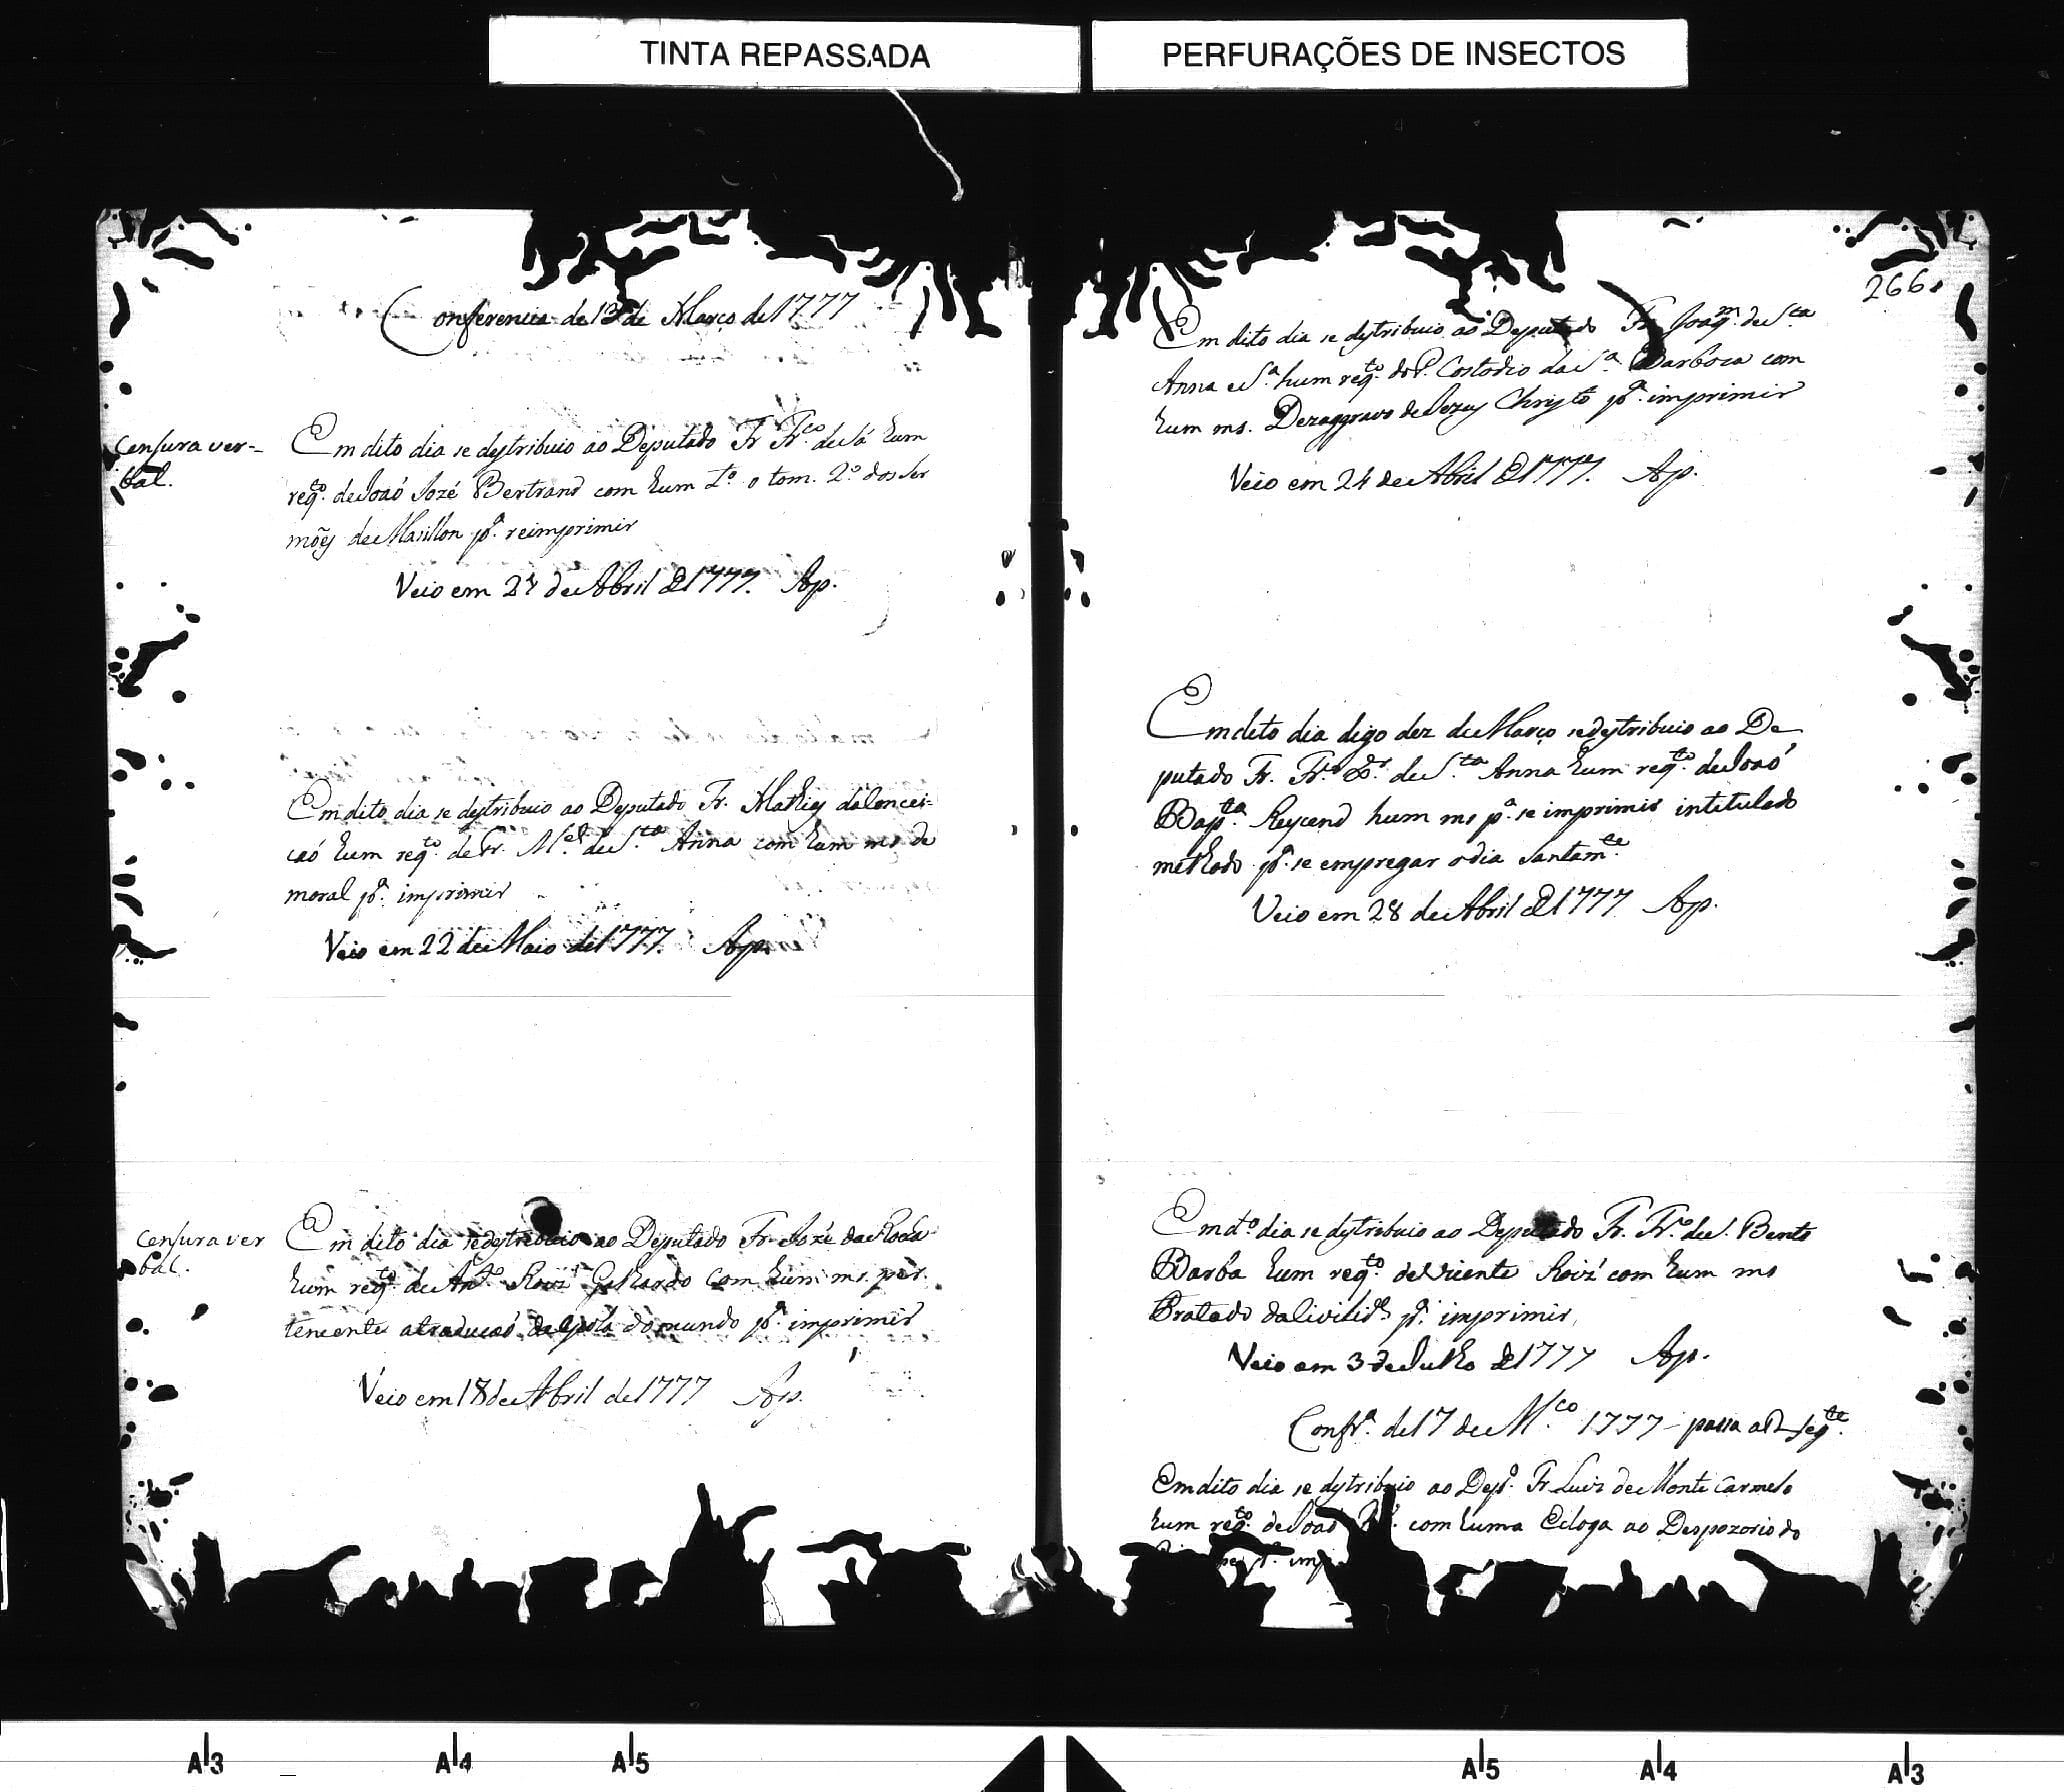 TINTA REPASSADA
PERFURAÇÕES DE INSECTOS
Conferencia de 13 de Março de 1777
Censura ver-
bal.
Em dito dia se destribuio ao Deputado Fr. Fr.co de Sá hum
req.to de João Jozé Bertrand com hum L.o o tom. 2.o dos Ser
mões de Masillon p.a reimprimir
Veio em 24 de Abril de 1777. Ap.
Em dito dia se destribuio ao Deputado Fr. Mathias da Concei-
ção hum req.to de Fr. M.el de S.ta Anna com hum ms de
moral p.a imprimir
Veio em 22 de Maio de 1777. Ap.
Censura ver
bal.
Em dito dia se destribuio ao Deputado Fr. Jozé da Rocha
hum req.to de Ant.o Roiz Galhardo com hum ms. per
tencente a traducaó do mundo p.a imprimir
Veio em 18 de Abril de 1777 Ap.
266
Em dito dia se destribuio ao Deputado Fr. Joaq.m de S.ta
Anna e S.a hum req.to do P. Costodio da S.a Barboza com
hum ms. Dezaggravo de Jezus Christo p.a imprimir
Veio em 24 de Abril de 1777. Ap.
Em dito dia digo dez de Março se destribuio ao De
putado Fr. de S.ta Anna hum req.to de João
Bap.ta Reycend hum ms p.a se imprimir intitulado
methodo p.a se empregar o dia santam.te
Veio em 28 de Abril de 1777 Ap.
Em d.o dia se destribuio ao Deputado Fr. Fr.o de S. Bento
Barba hum req.to de Vicente Roiz com hum ms
Tratado da Civilid.e p.a imprimir
Veio em 3 de Julho de 1777 Ap.
Confr.a de 17 de M.co 1777 - passa a f. seg.te
Em dito dia se destribuio ao Dep.o Fr. Luis de Monte Carmelo
hum req.to de João com huma Ecloga ao Despozorio do
p.a imp
A3
A4
A5
A5
A4
A3